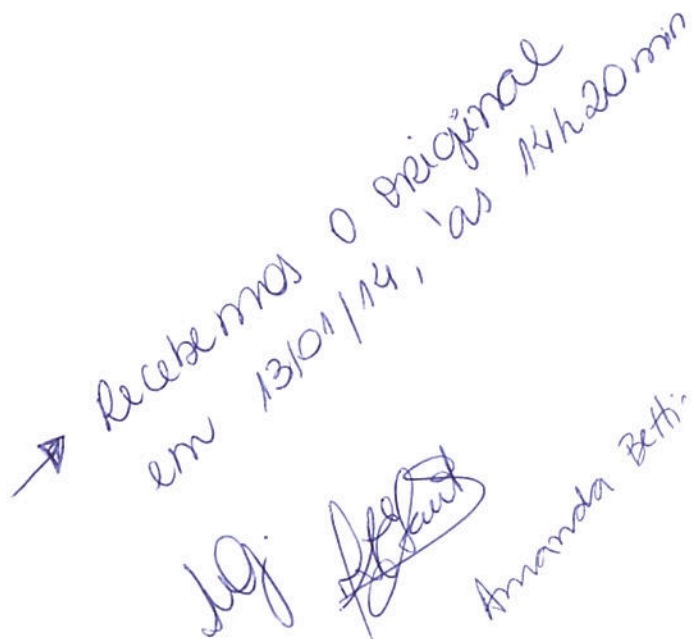 Recebemos o original
em 13/01/14, às 14h20min
Amanda Betti.